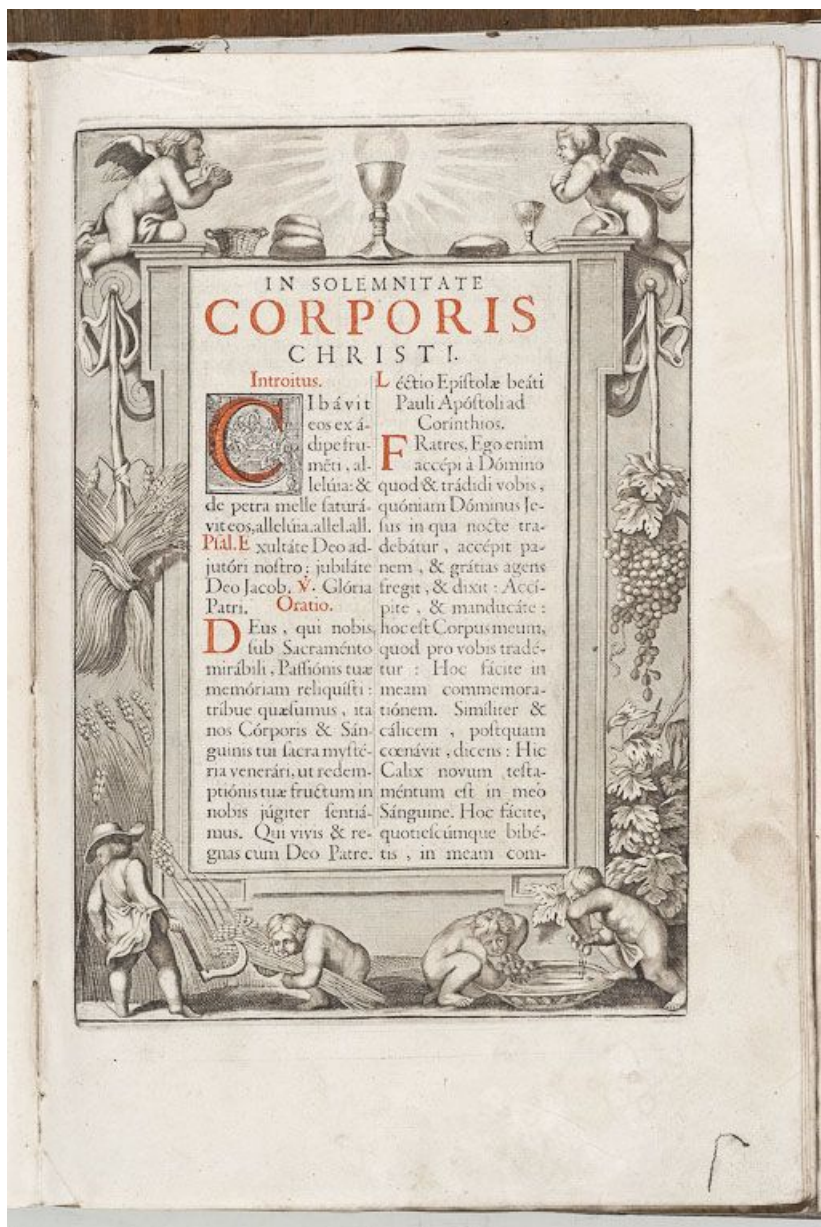 IN SOLEMNITATE
CORPORIS
CHRISTI.
Introitus.
CIbávit
eos ex á-
dipe fru-
mẽti, al-
lelúia: &
de petra melle ſaturá-
vit eos, allelúia. allel. all.
Pſal. Exultáte Deo ad-
jutóri noſtro: jubiláte
Deo Jacob. ℣. Glória
Patri. Oratio.
DEus, qui nobis
ſub Sacraménto
mirábili, Paſſiónis tuæ
memóriam reliquíſti:
tríbue quæſumus, ita
nos Córporis & Sán-
guinis tui ſacra myſté-
ria venerári, ut redem-
ptiónis tuæ fructum in
nobis júgiter ſentiá-
mus. Qui vivis & re-
gnas cum Deo Patre.
Léctio Epíſtolæ beáti
Pauli Apóſtoli ad
Corinthios.
FRatres. Ego enim
accépi à Dómino
quod & trádidi vobis,
quóniam Dóminus Je-
ſus in qua nocte tra-
debátur, accépit pa-
nem, & grátias agens
fregit, & dixit: Accí-
pite, & manducáte:
hoc eſt Corpus meum,
quod pro vobis tradé-
tur: Hoc fácite in
meam commemora-
tiónem. Simíliter &
cálicem, poſtquam
cœnávit, dicens: Hic
Calix novum teſta-
méntum eſt in meo
Sánguine. Hoc fácite,
quotieſcúmque bibé-
tis, in meam com-